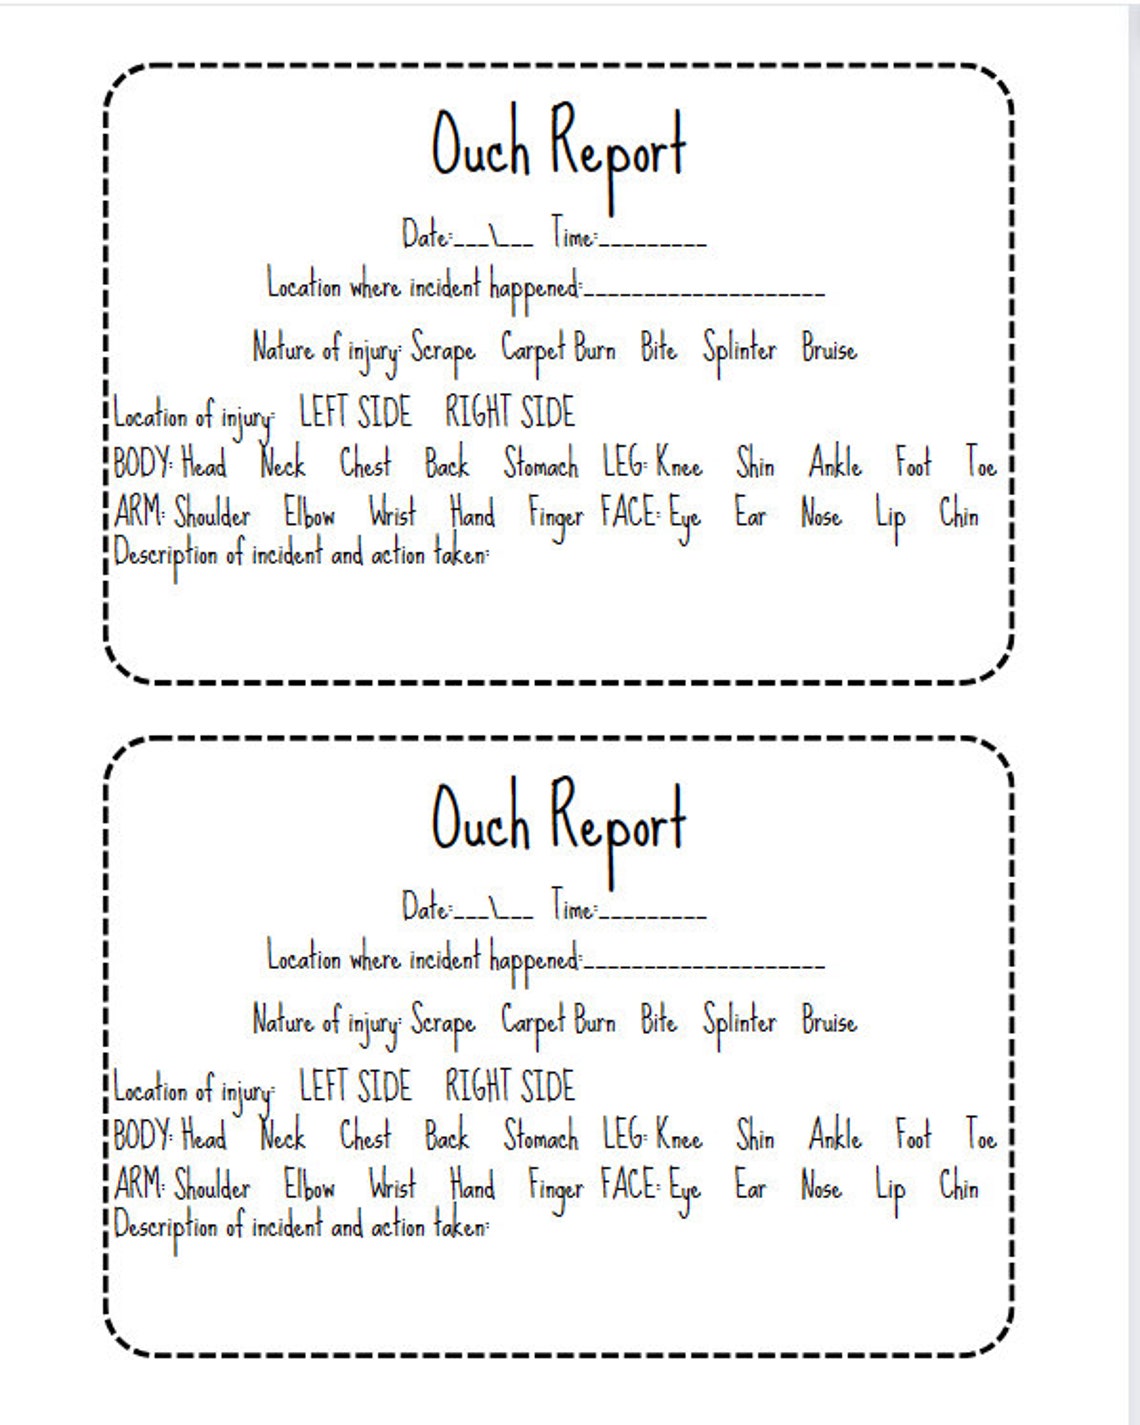 Ouch Report
Date:___\___ Time:_________
Location where incident happened:____________________
Nature of injury: Scrape Carpet Burn Bite Splinter Bruise
Location of injury: LEFT SIDE RIGHT SIDE
BODY: Head Neck Chest Back Stomach LEG: Knee Shin Ankle Foot Toe
ARM: Shoulder Elbow Wrist Hand Finger FACE: Eye Ear Nose Lip Chin
Description of incident and action taken:
Ouch Report
Date:___\___ Time:_________
Location where incident happened:____________________
Nature of injury: Scrape Carpet Burn Bite Splinter Bruise
Location of injury: LEFT SIDE RIGHT SIDE
BODY: Head Neck Chest Back Stomach LEG: Knee Shin Ankle Foot Toe
ARM: Shoulder Elbow Wrist Hand Finger FACE: Eye Ear Nose Lip Chin
Description of incident and action taken: